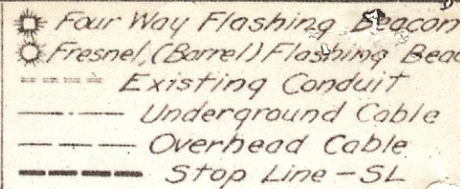 Four Way Flashing Beacon
Fresnel, (Barrel) Flashing
Existing Conduit
Underground Cable
Overhead Cable
Stop Line - SL